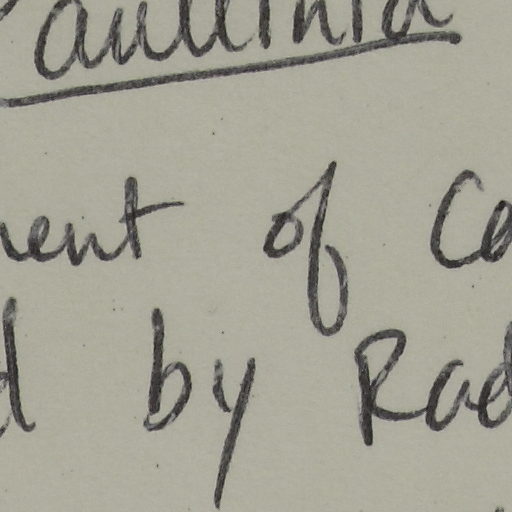 Paullinia
ment of Co
d by Rad